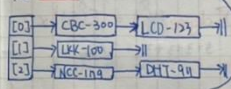 [0] CBC-300 LCD-123
[1] LKK-100
[2] NCC-179 DHT-94